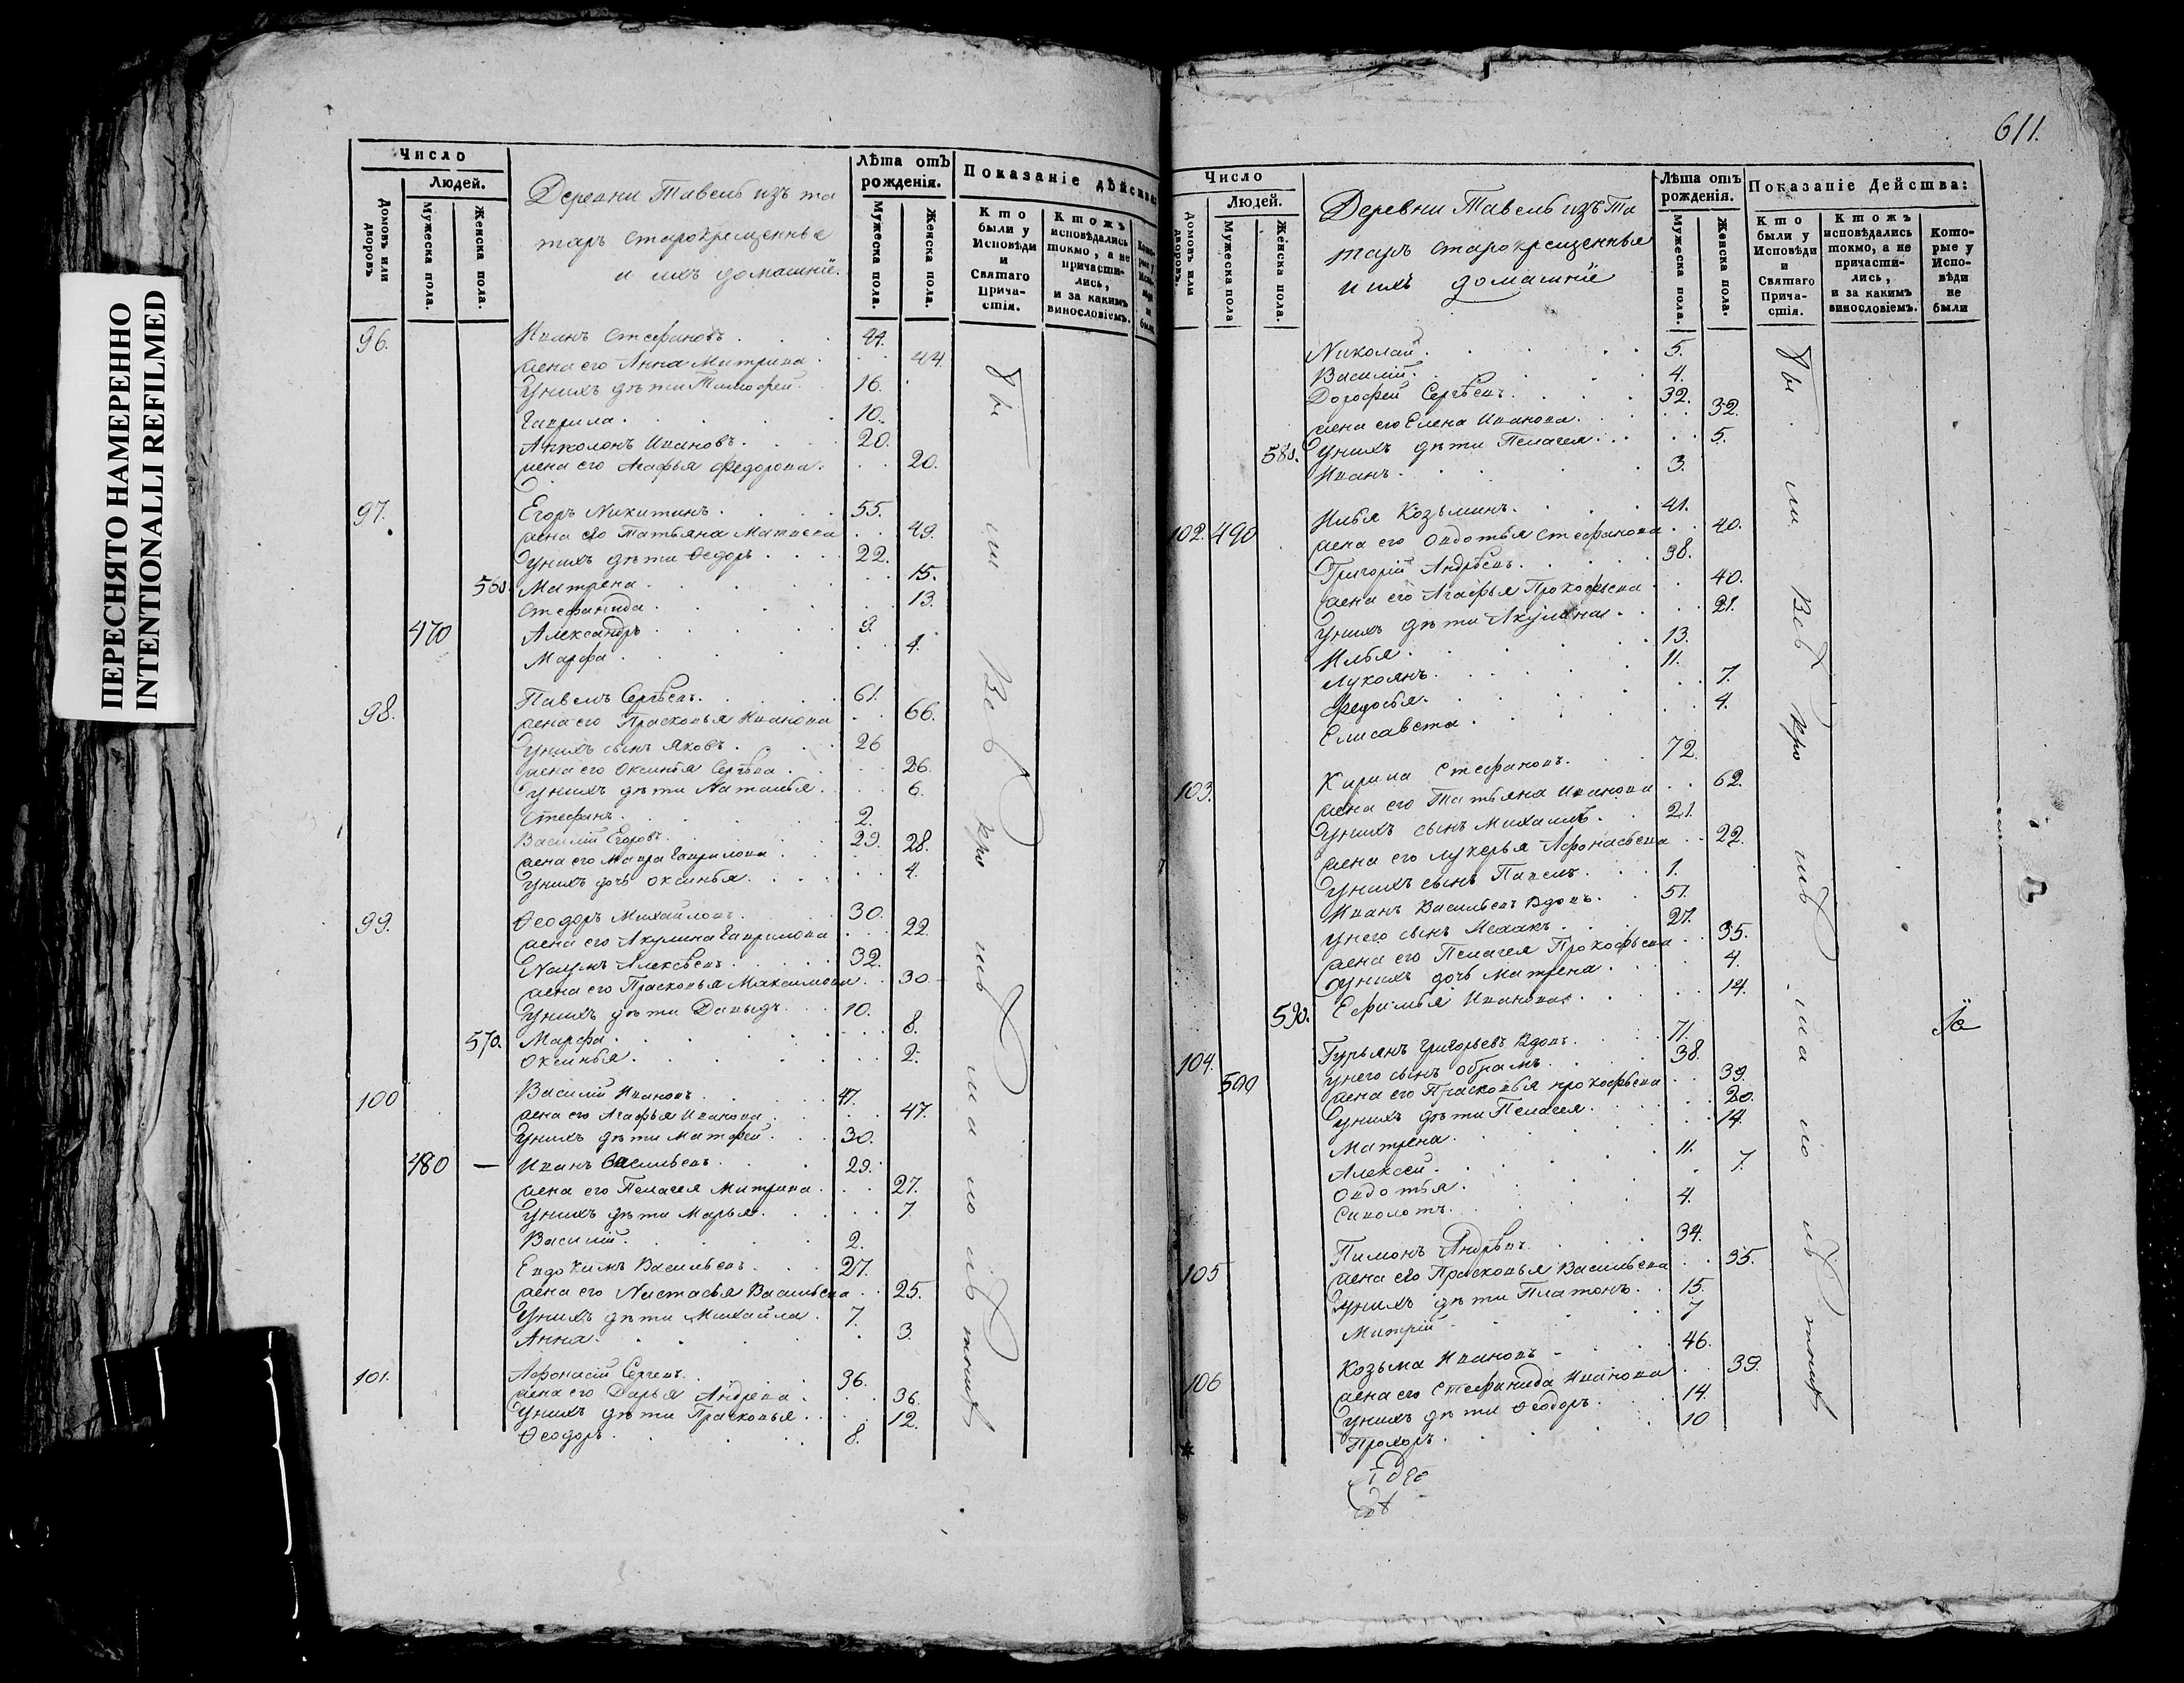 ПЕРЕСНЯТО НАМЕРЕННО
INTENTIONALLI REFILMED
Число
Людей.
Домовъ или дворовъ
Мужеска пола.
Женска пола.
Деревни Тавель изъ та
таръ старокрещенные
и ихъ домашніе.
Лѣта отъ рожденія.
Мужеска пола.
Женска пола.
Показаніе дѣйства:
Кто были у Исповѣди и Святаго Причастія.
Ктожъ исповѣдались токмо, а не причастились, и за какимъ винословіемъ.
96. Иванъ Стефановъ 44.
жена его Анна Митрива 44.
У нихъ дѣти Тимофей 16.
Гаврила 10.
Апколонъ Ивановъ 20.
жена его Агафья Федорова 20.
97. Егоръ Никитинъ 55.
жена его Татьяна Матвева 49.
У нихъ дѣти Ѳедоръ 22.
560. Матрена 15.
Стефанида 13.
470 Александръ 9.
Марфа 4.
98. Павелъ Сергѣевъ 61.
жена его Прасковья Иванова 66.
У нихъ сынъ Яковъ 26
жена его Оксинья Сергѣва 26.
У нихъ дѣти Наталья 6.
Стефанъ 2.
Василій Егоровъ 29.
жена его Мавра Гаврилова 28.
У нихъ дочь Оксинья 4.
99. Ѳеодоръ Михайловъ 30.
жена его Акулина Гаврилова 22.
Наумъ Алексѣевъ 32.
жена его Прасковья Максимова 30
У нихъ дѣти Давыдъ 10.
570. Марфа 8.
Оксинья 2.
100 Василій Ивановъ 47.
жена его Агафья Иванова 47.
У нихъ дѣти Матфей 30.
480 — Иванъ Васильевъ 29.
жена его Пелагея Митрива 27.
У нихъ дѣти Марья 7
Василій 2.
Евдокимъ Васильевъ 27.
жена его Настасья Васильева 25.
У нихъ дѣти Михайла 7.
Анна 3.
101. Афонасій Сергеевъ 36.
жена его Дарья Андрева 36.
У нихъ дѣти Прасковья 12.
Ѳеодоръ 8.
Бы ли Всѣ кро мѣ ма ло лѣтныхъ
611.
Число
Людей.
Домовъ или дворовъ.
Мужеска пола
Женска пола.
Деревни Тавель изъ Та
таръ старокрещенныя
и ихъ домашніе
Лѣта отъ рожденія.
Мужеска пола.
Женска пола.
Показаніе Действа:
Кто были у Исповѣди и Святаго Причастія.
Ктожъ исповѣдались токмо, а не причастились, и за какимъ винословіемъ.
Которые у Исповѣди не были
Николай 5.
Василій 4.
Дорофей Сергѣевъ 32.
жена его Елена Иванова 32.
580. У нихъ дѣти Пелагея 5.
Иванъ 3.
102. 490 Илья Козьминъ 41.
жена его Овдотья Стефанова 40.
Григорій Андрѣевъ 38.
жена его Агафья Прокофьева 40.
У нихъ дѣти Акулина 21.
Илья 13.
Лукоянъ 11.
Федосья 7.
Елисавета 4.
103. Кирила Стефановъ 72.
жена его Татьяна Иванова 62.
У нихъ сынъ Михаилъ 21.
жена его Лукерья Афонасьева 22.
У нихъ сынъ Павелъ 1.
Иванъ Васильевъ вдовъ 51.
У него сынъ Исаакъ 27.
жена его Пелагея Прокофьева 35.
У нихъ дочь Матрена 4.
590. Ефимья Иванова 14.
104. Гурьянъ Григорьевъ вдовъ 71.
У него сынъ Обрамъ 38.
500 жена его Прасковья Прокофьева 39.
У нихъ дѣти Пелагея 20.
Матрена 14.
Алексей 11.
Овдотья 7.
Сиволотъ 4.
105 Пимонъ Андрѣевъ 34.
жена его Прасковья Васильева 35.
У нихъ дѣти Платонъ 15.
Митрій 7
106 Козьма Ивановъ 46.
жена его Стефанида Иванова 39.
У нихъ дѣти Ѳеодоръ 14.
Прохоръ 10
Бы ли Всѣ кро мѣ ма ло лѣтныхъ